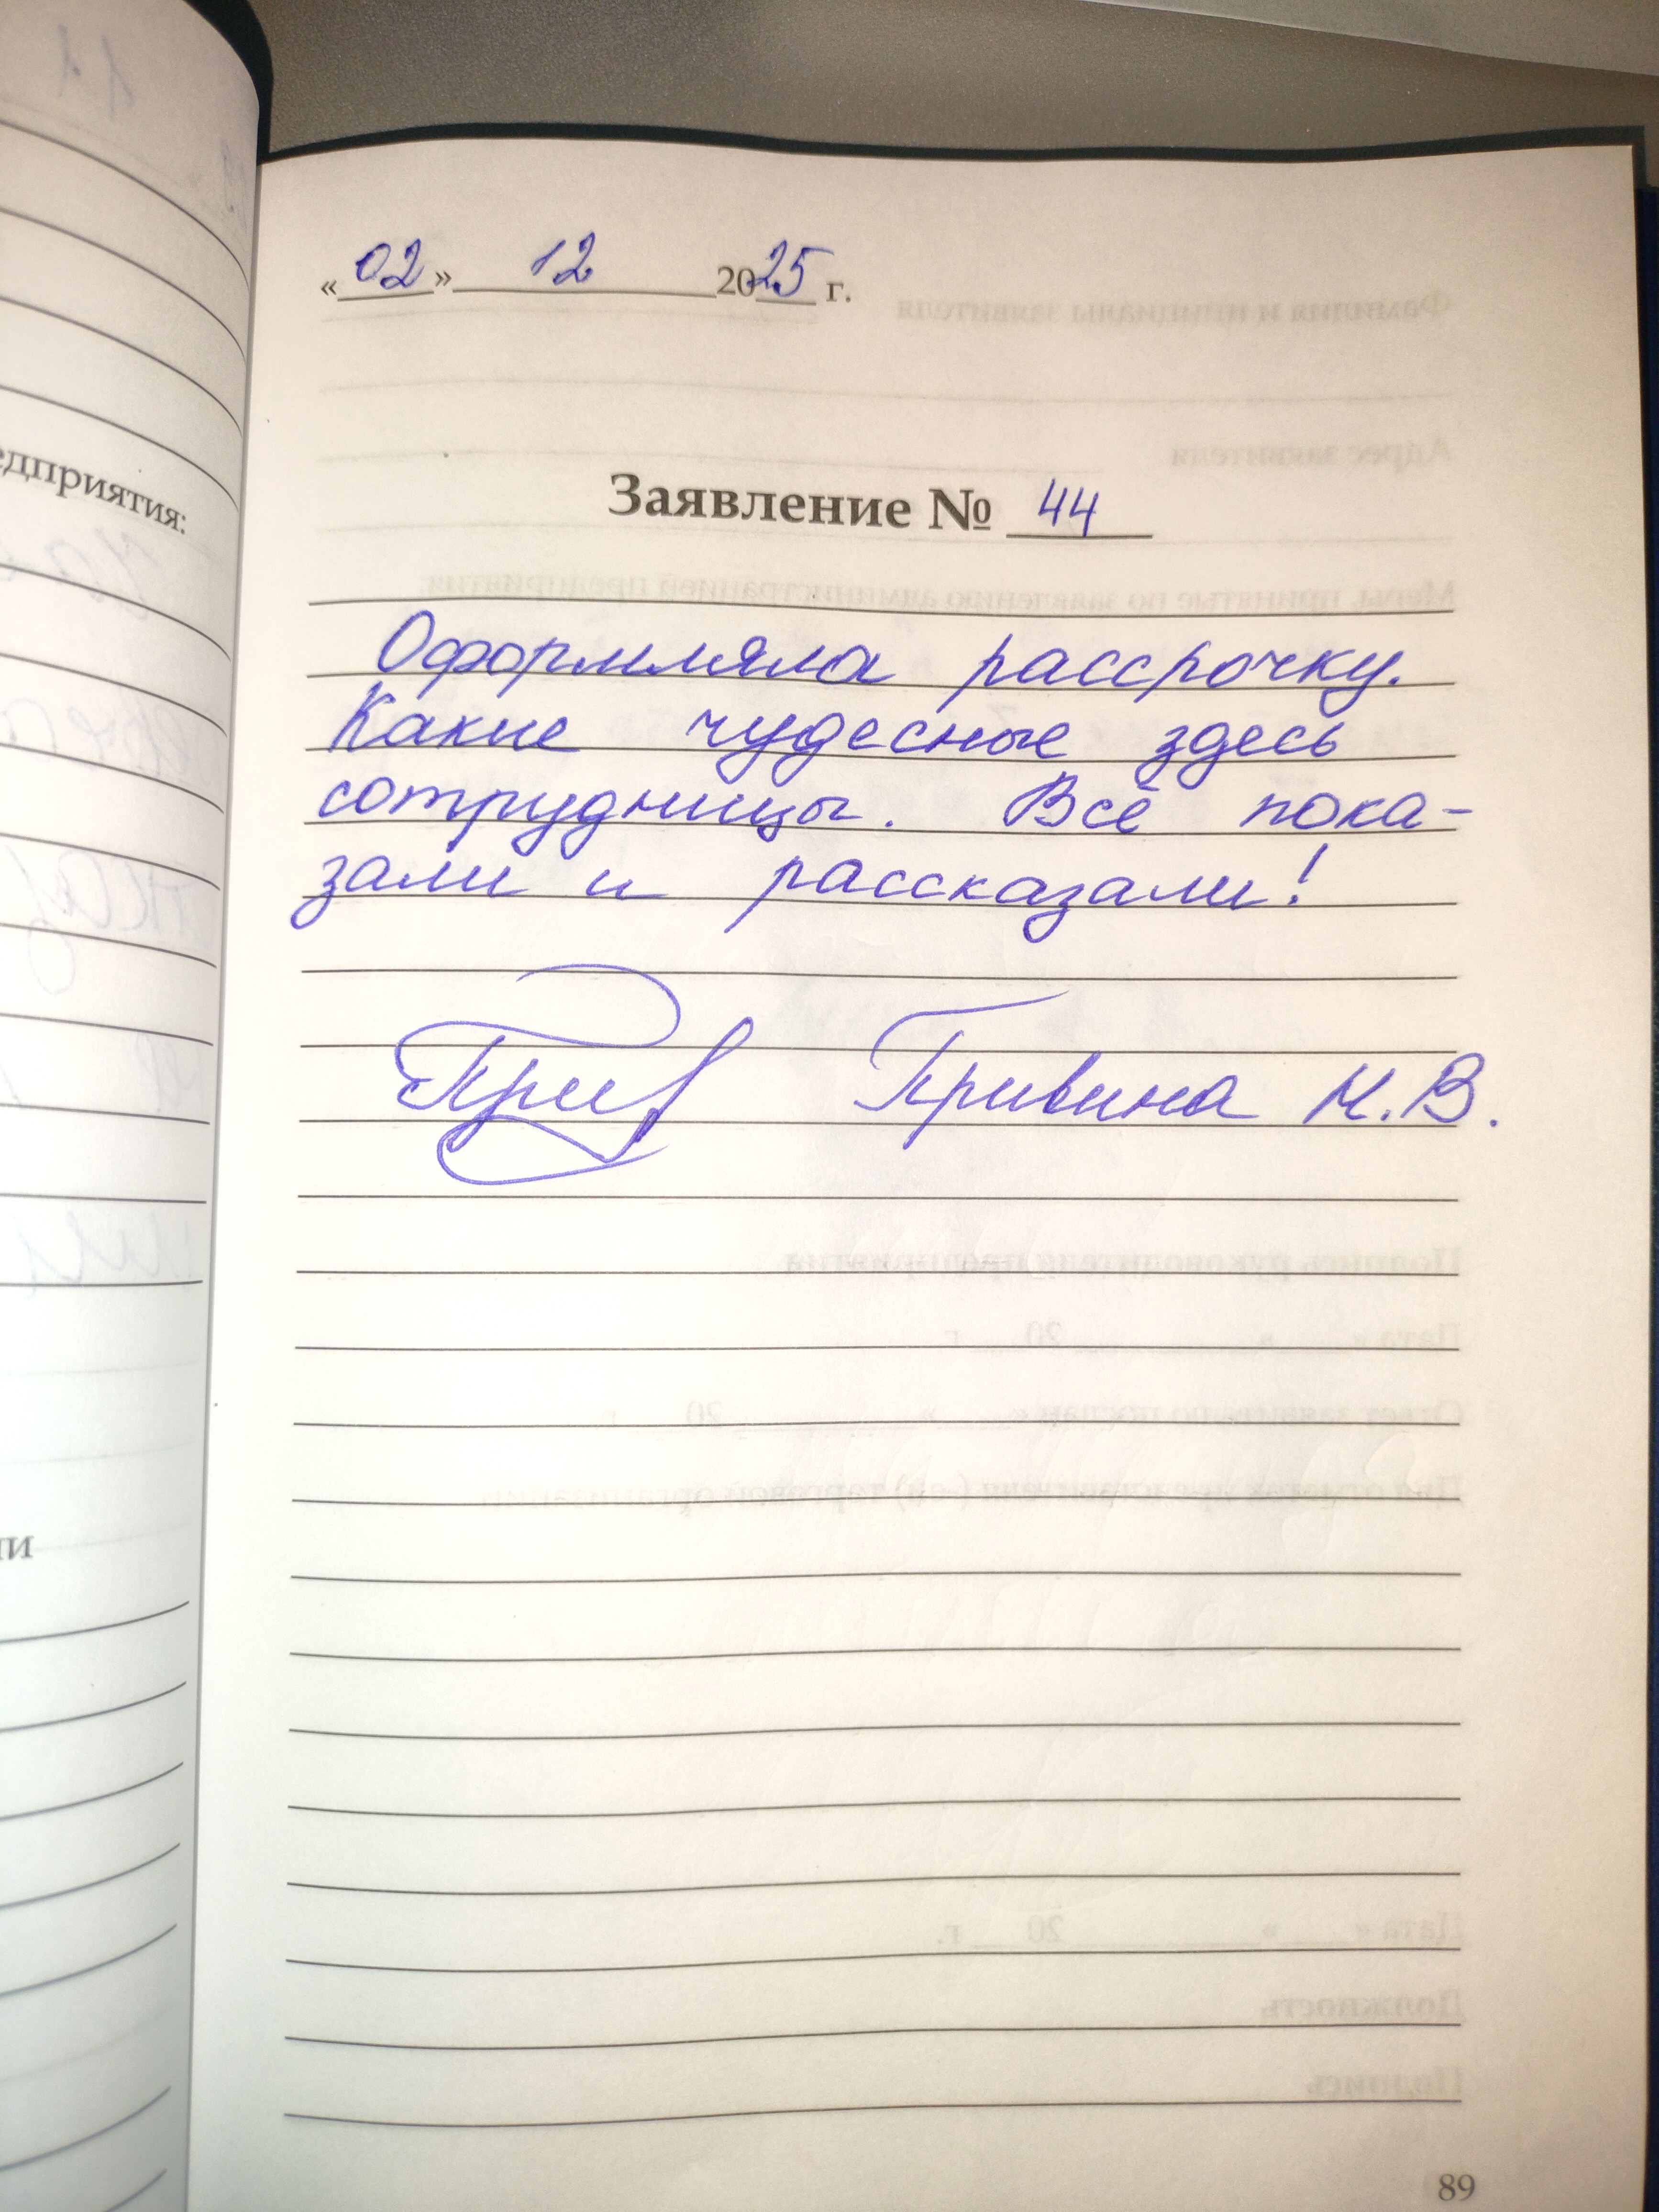 едприятия:
ии
«02» 12 2025 г.
Заявление № 44
Оформляла рассрочку.
Какие чудесные здесь
сотрудницы. Всё пока-
зали и рассказали!
Гривина Н.В.
89